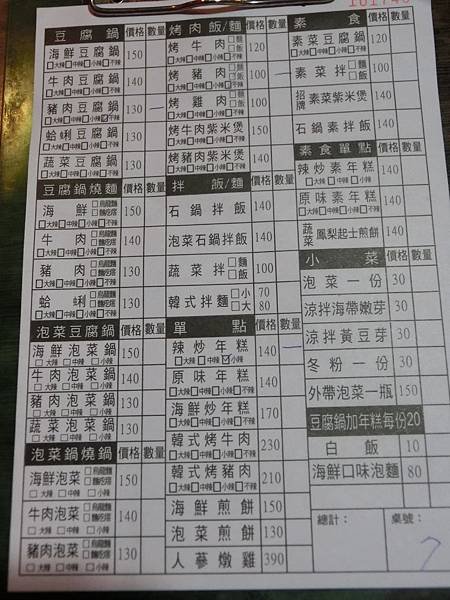 豆腐鍋 價格 數量
海鮮豆腐鍋 150
□大辣 □中辣 □小辣 □不辣
牛肉豆腐鍋 140
□大辣 □中辣 □小辣 □不辣
豬肉豆腐鍋 130 一
□大辣 □中辣 □小辣 ☑不辣
蛤蜊豆腐鍋 130
□大辣 □中辣 □小辣 □不辣
蔬菜豆腐鍋 130
□大辣 □中辣 □小辣 □不辣
豆腐鍋燒麵 價格 數量
海鮮 □烏龍麵 □麵疙瘩 150
□大辣 □中辣 □小辣 □不辣
牛肉 □烏龍麵 □麵疙瘩 140
□大辣 □中辣 □小辣 □不辣
豬肉 □烏龍麵 □麵疙瘩 130
□大辣 □中辣 □小辣 □不辣
蛤蜊 □烏龍麵 □麵疙瘩 130
□大辣 □中辣 □小辣 □不辣
泡菜豆腐鍋 價格 數量
海鮮泡菜鍋 150
□大辣 □中辣 □小辣
牛肉泡菜鍋 140
□大辣 □中辣 □小辣
豬肉泡菜鍋 130
□大辣 □中辣 □小辣
蔬菜泡菜鍋 130
□大辣 □中辣 □小辣
泡菜鍋燒鍋 價格 數量
海鮮泡菜 □烏龍麵 □麵疙瘩 150
□大辣 □中辣 □小辣
牛肉泡菜 □烏龍麵 □麵疙瘩 140
□大辣 □中辣 □小辣
豬肉泡菜 □烏龍麵 □麵疙瘩 130
□大辣 □中辣 □小辣
烤肉飯/麵 價格 數量
烤牛肉 □麵 □飯 120
□大辣 □中辣 □小辣 □不辣
烤豬肉 □麵 □飯 100 一
□大辣 □中辣 □小辣 ☑不辣
烤雞肉 □麵 □飯 100
□大辣 □中辣 □小辣 □不辣
烤牛肉紫米煲 150
□大辣 □中辣 □小辣 □不辣
烤豬肉紫米煲 140
□大辣 □中辣 □小辣 □不辣
拌飯/麵 價格 數量
石鍋拌飯 140
泡菜石鍋拌飯 140
蔬菜拌 □麵 □飯 100
韓式拌麵 □小 70
□大 80
單點 價格 數量
辣炒年糕 140 一
□大辣 □中辣 ☑小辣
原味年糕 140
海鮮炒年糕 170
□大辣 □中辣 □小辣 □不辣
韓式烤牛肉 230
□大辣 □中辣 □小辣 □不辣
韓式烤豬肉 210
□大辣 □中辣 □小辣 □不辣
海鮮煎餅 150
泡菜煎餅 130
人蔘燉雞 390
素食 價格 數量
素菜豆腐鍋 120
□大辣 □中辣 □小辣 □不辣
素菜拌 □麵 □飯 100
招牌 素菜紫米煲 140
石鍋素拌飯 140
素食單點 價格 數量
辣炒素年糕 140
□大辣 □中辣 □小辣
原味素年糕 140
蔬菜 鳳梨起士煎餅 140
小菜 價格 數量
泡菜一份 30
涼拌海帶嫩芽 30
涼拌黃豆芽 30
冬粉一份 30
外帶泡菜一瓶 150
豆腐鍋加年糕每份20
白飯 10
海鮮口味泡麵 80
總計: 桌號:
7